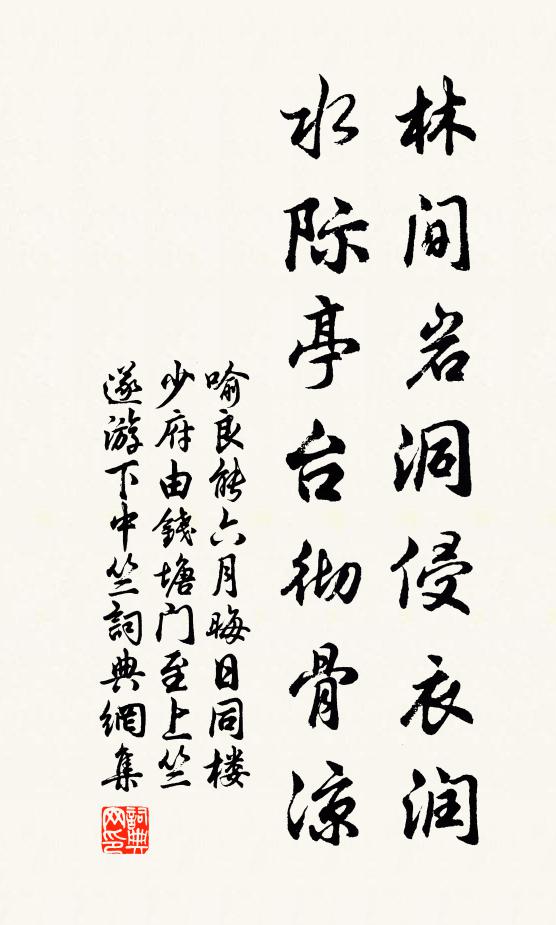 林间岩洞侵衣润
水际亭台彻骨凉
喻良能六月晦日同楼
少府由錢塘门至上竺
遂游下中竺詞典網集
詞典網印